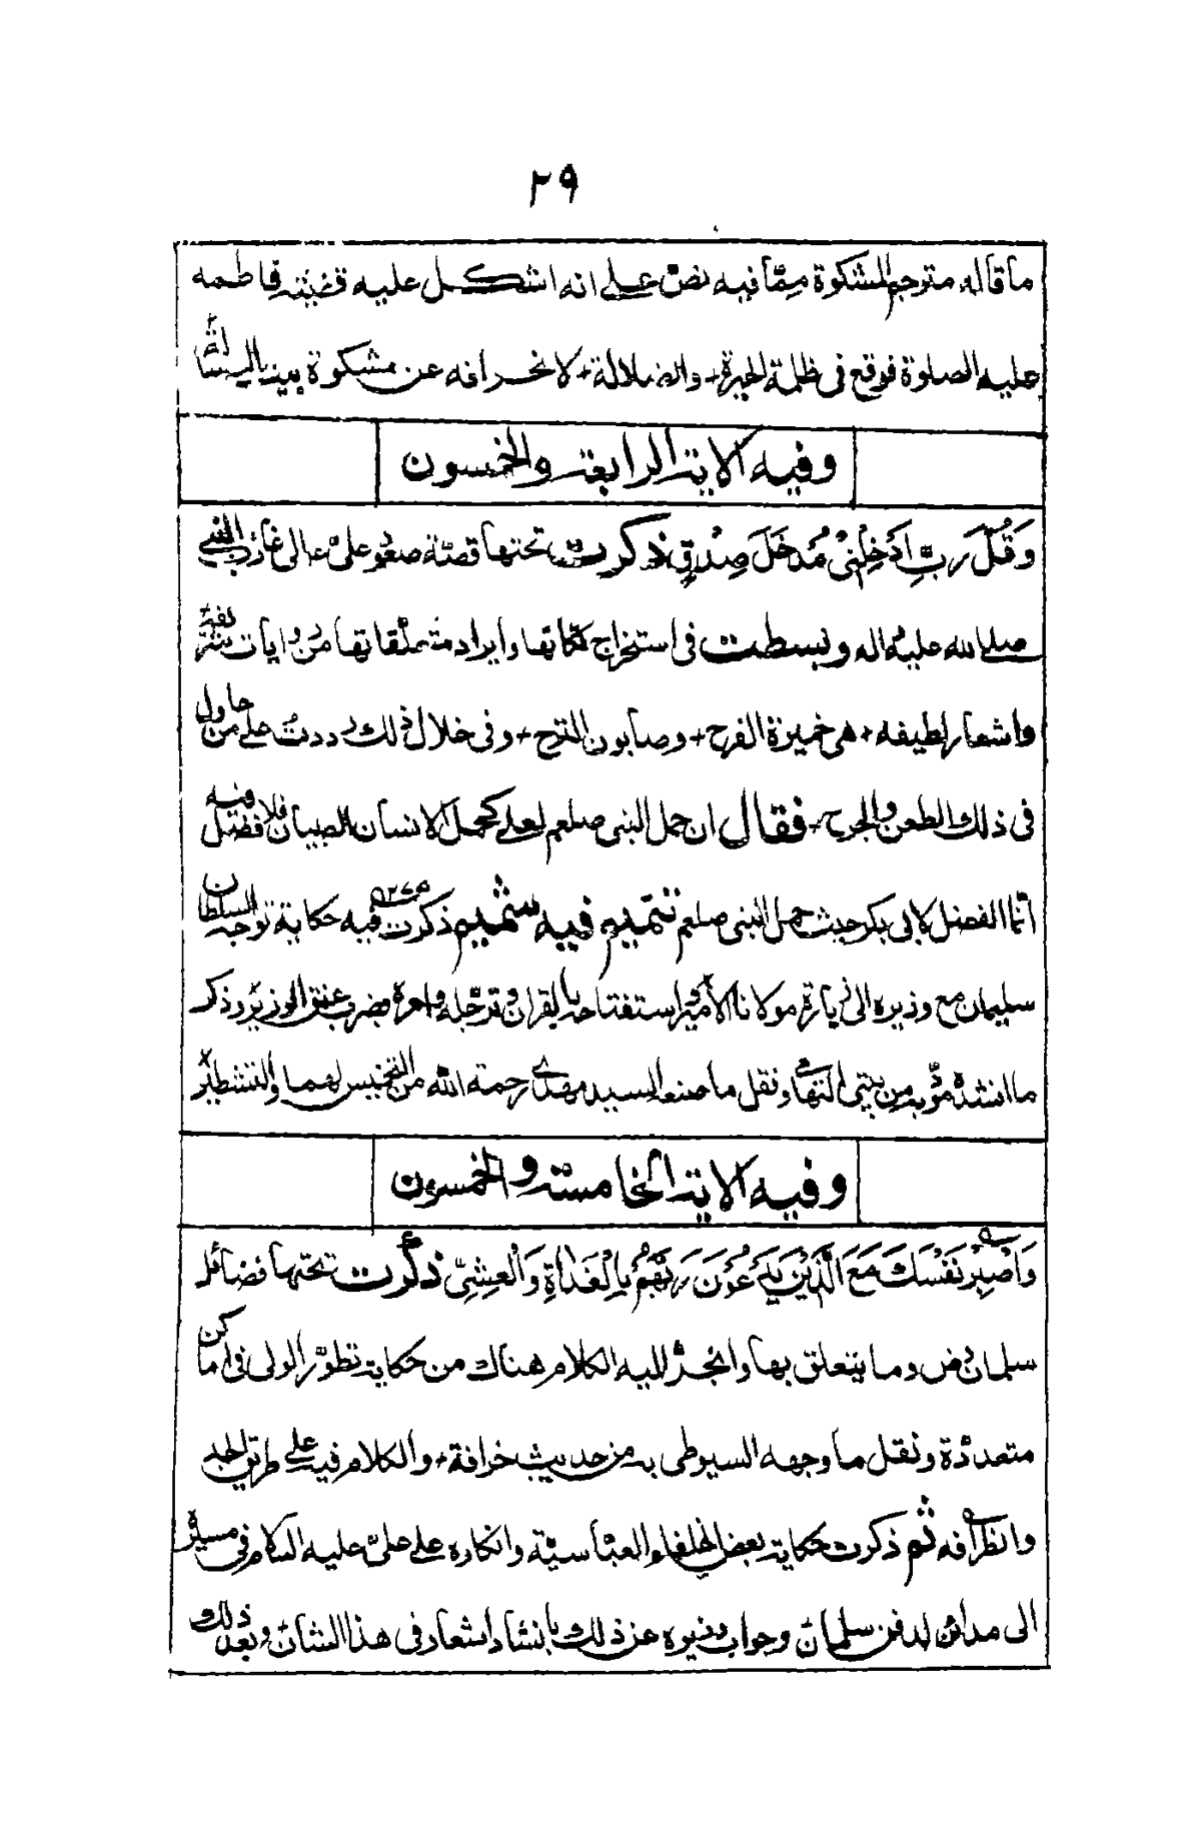 ٢٩
ما قاله مترجم المشكوة مما فيه نص على انه اشكل عليه قضية فاطمه
عليه الصلوة فوقع في ظلمة الحيرة + والضلالة + لانحرافه عن مشكوة بيت الرسالة
وفيه الاية الرابعة والخمسون
وَقُلْ رَبِّ اَدْخِلْنِىْ مُدْخَلَ صِدْقٍ ذكرت تحتها قصّة صعود علىّ عالى غارب النبى
صلى الله عليه واله وبسطت فى استخراج نكاتها وايراد متعلقاتها من روايات
واشعار لطيفه + هى خميرة الفرح + وصابون الترح + وفى خلال ذلك رددت على من حاول
فى ذلك الطعن والجرح + فقال ان حمل النبى صلعم لعلى كحمل الانسان للصبيان فلا فضل فيه
انما الفضل لابى بكر حيث حمل النبى صلعم تتميم فيه تنميم ذكرت فيه حكاية توجه السلطان
سليمان مع وزيره الى زيارة مولانا الامير واستفتاحه بالقران وترجله وامره بضرب عنق الوزير وذكر
ما انشده مؤدبه من بيتى التهامى ونقل ما صنعه السيد مهدى رحمة الله من التخميس لهما والتشطير
وفيه الاية الخامسة والخمسون
وَاصْبِرْ نَفْسَكَ مَعَ الَّذِيْنَ يَدْعُوْنَ رَبَّهُمْ بِالْغَدَاةِ وَالْعَشِىِّ ذكرت تحتها فضائل
سلمان رض وما يتعلق بها وانجرّ اليه الكلام هناك من حكاية تطوّر الولى فى اماكن
متعددة ونقل ما وجهه السيوطى به من حديث خرافة + والكلام فيه على طريق الجد
والظرافه ثم ذكرت حكاية بعض الخلفاء العباسيّة وانكاره على علىّ عليه السلام فى مسيره
الى مدائن لدفن سلمان وجواب وزيره عن ذلك بانشاد اشعار فى هذا الشان وبعد ذلك